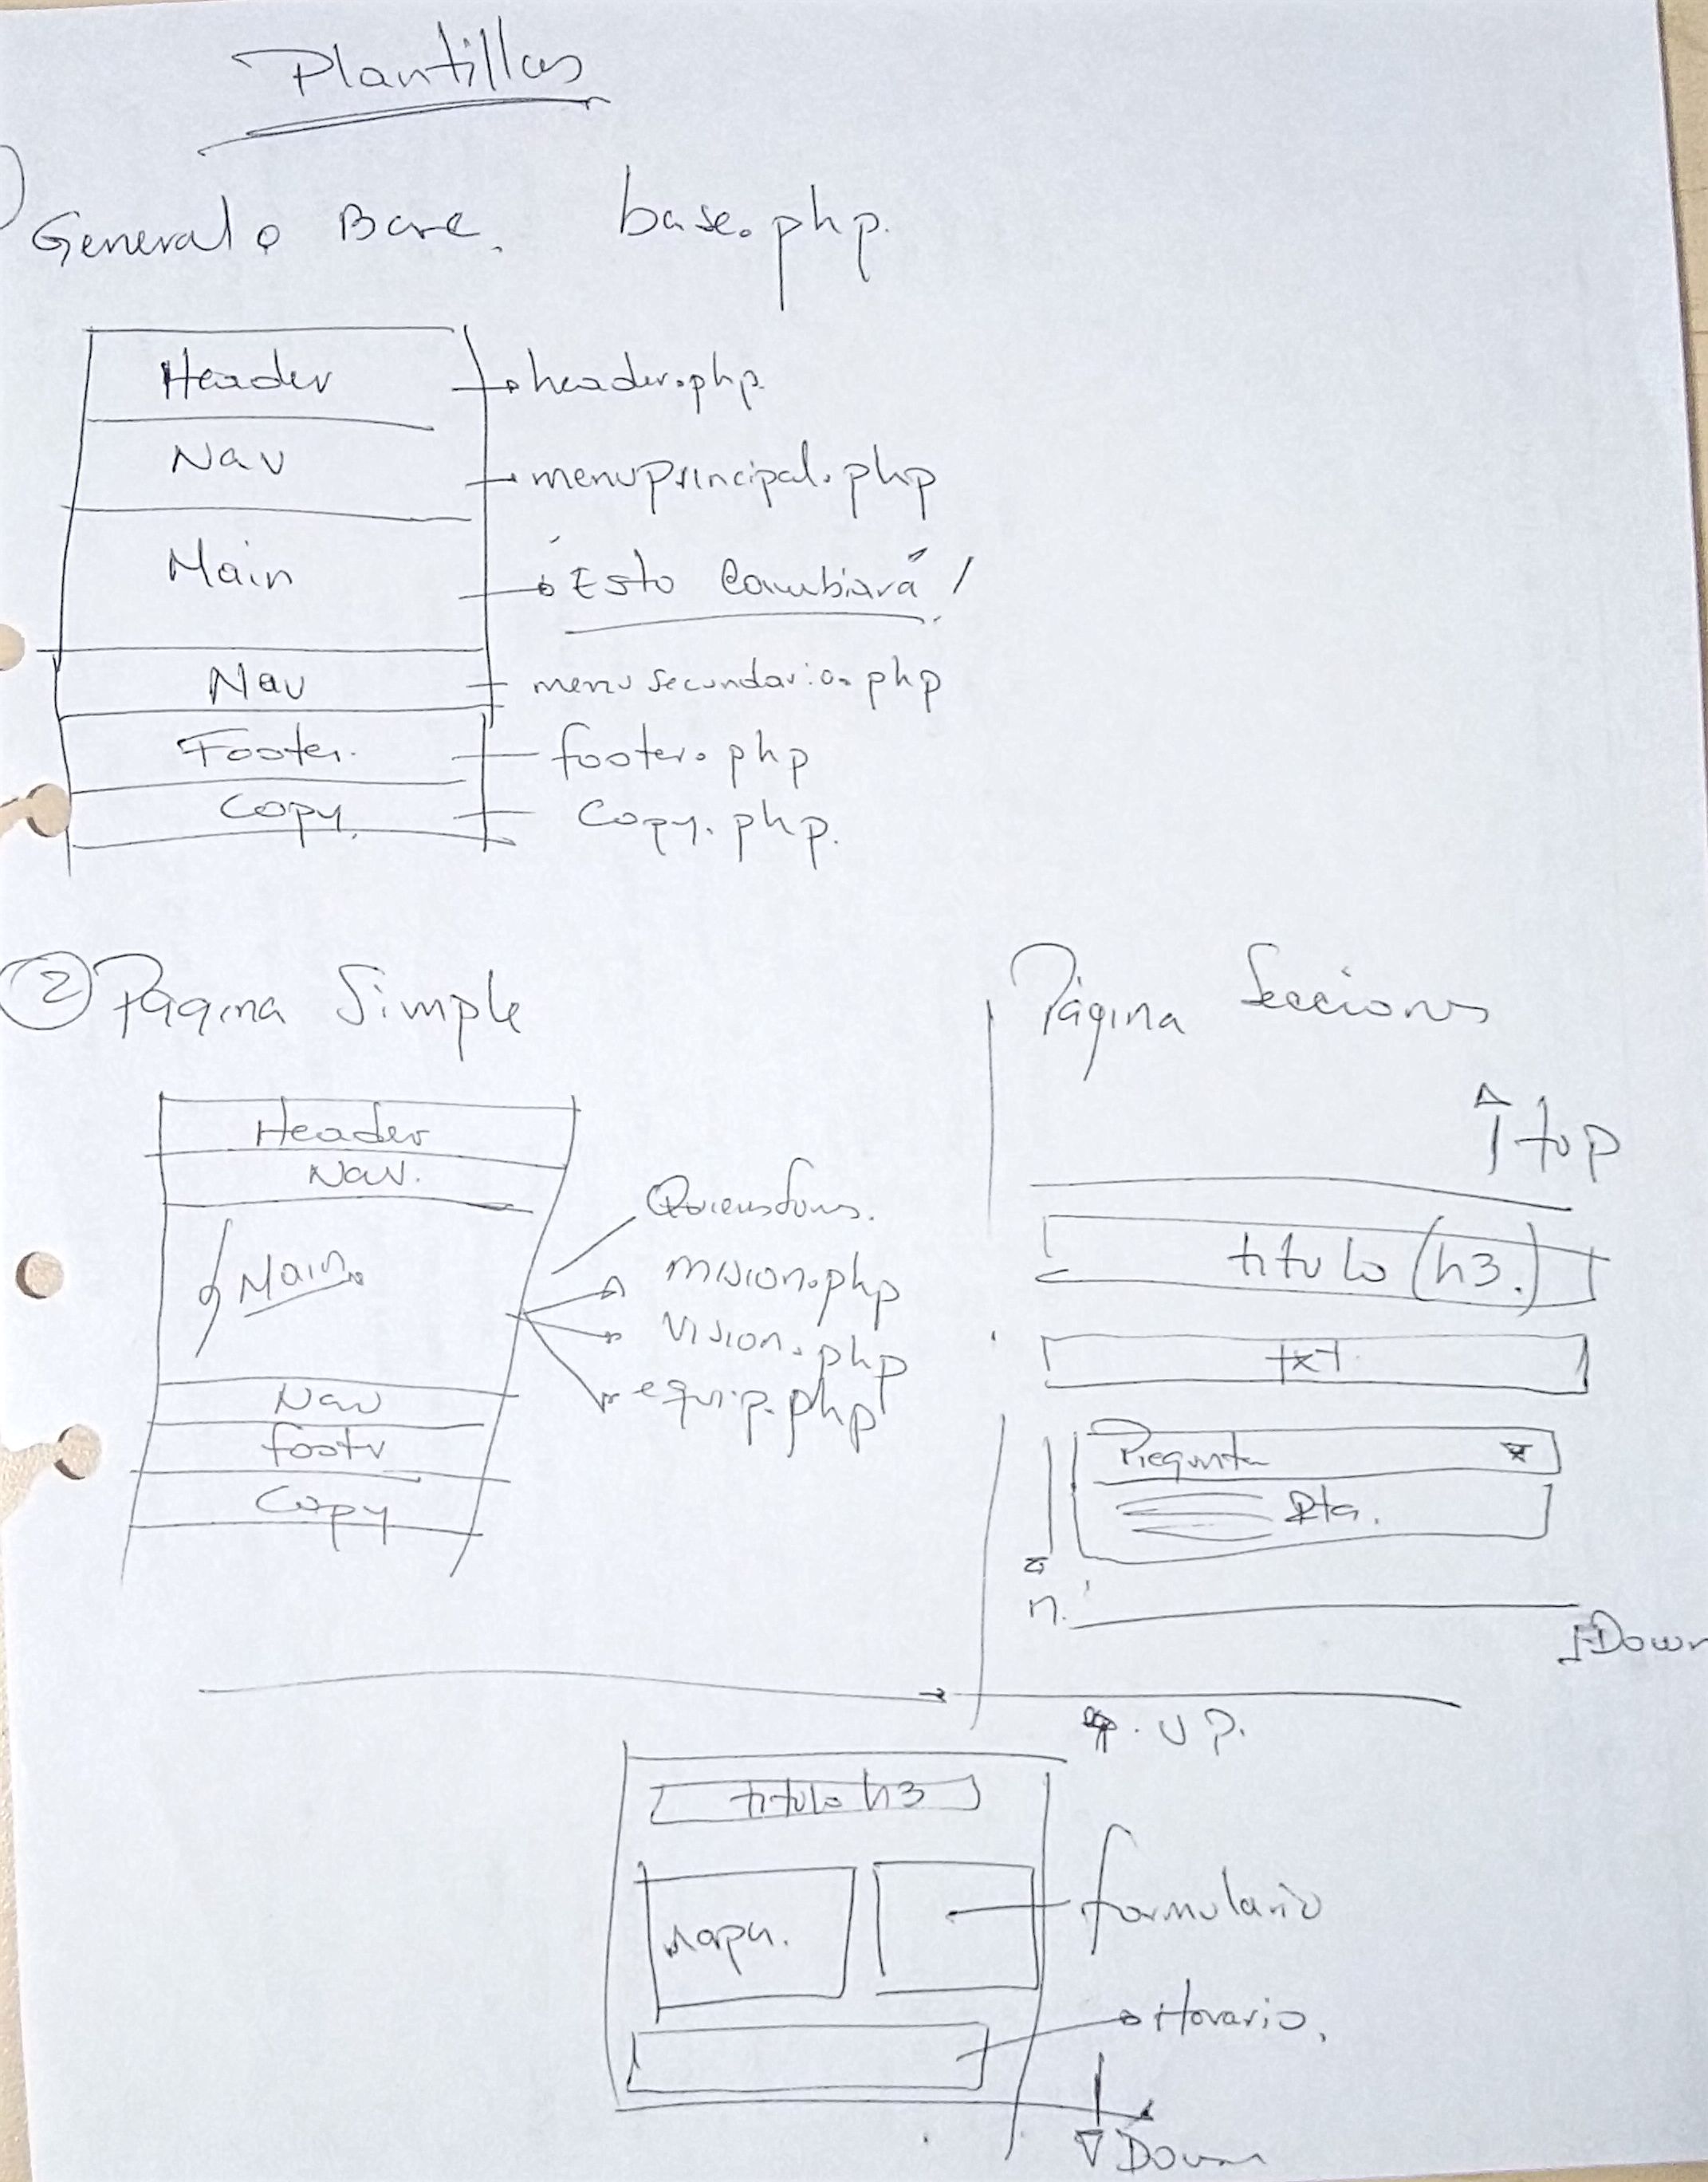 Plantillas
General o Base. base.php.
Header header.php.
Nav menuprincipal.php
Main Esto Cambiará!
Nav menu secundario.php
Footer. footer.php
Copy. Copy.php.
2 Página Simple
Header
Nav.
Main
misión.php
visión.php
equip.php
Nav
footr
Copy
Página Secciones
top
titulo (h3.)
txt.
Pregunta
Rta.
n.
Down
UP.
titulo h3
Mapa.
formulario
Horario.
Down